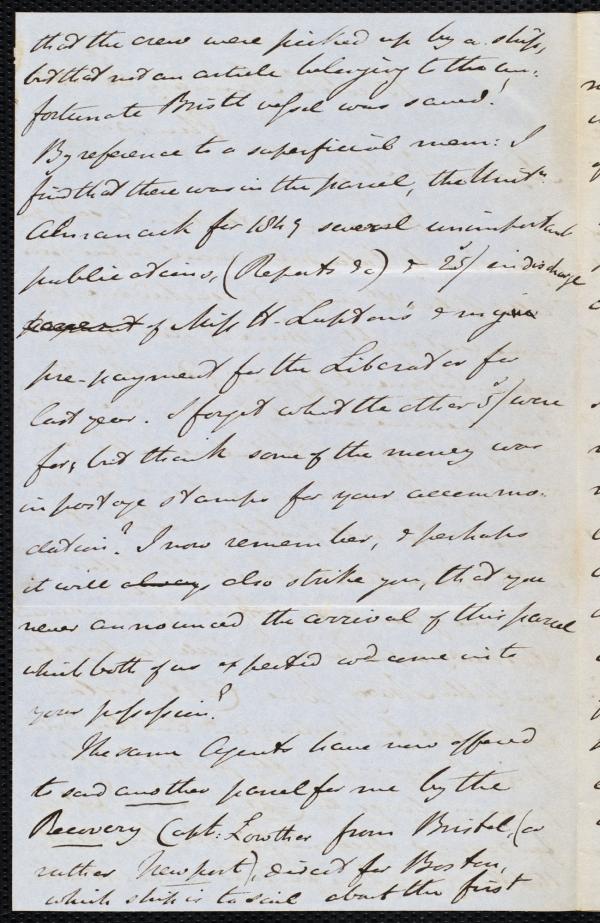 that the crew were picked up by a ship,
but that not an article belonging to the un-
fortunate Bristl vessel was saved.
By reference to a superficial mem: I
find that there was in the parcel, the Unitn.
Almanack for 1849 several unimportant
publications, (Reports &c) & 25/ in discharge
payment of Miss H. Lupton's & my
pre-payment for the Liberator for
last year. I forget what the other 5/ were
for, but think some of the money was
in postage stamps for your accommo-
dation? I now remember, & perhaps
it will always also strike you, that you
never announced the arrival of this parcel
which both of us expected wd come into
your possession?
The same Agents have now offered
to send another parcel for me by the
Recovery Capt: Lowther from Bristol, (or
rather Newport), direct for Boston,
which ship is to sail about the first